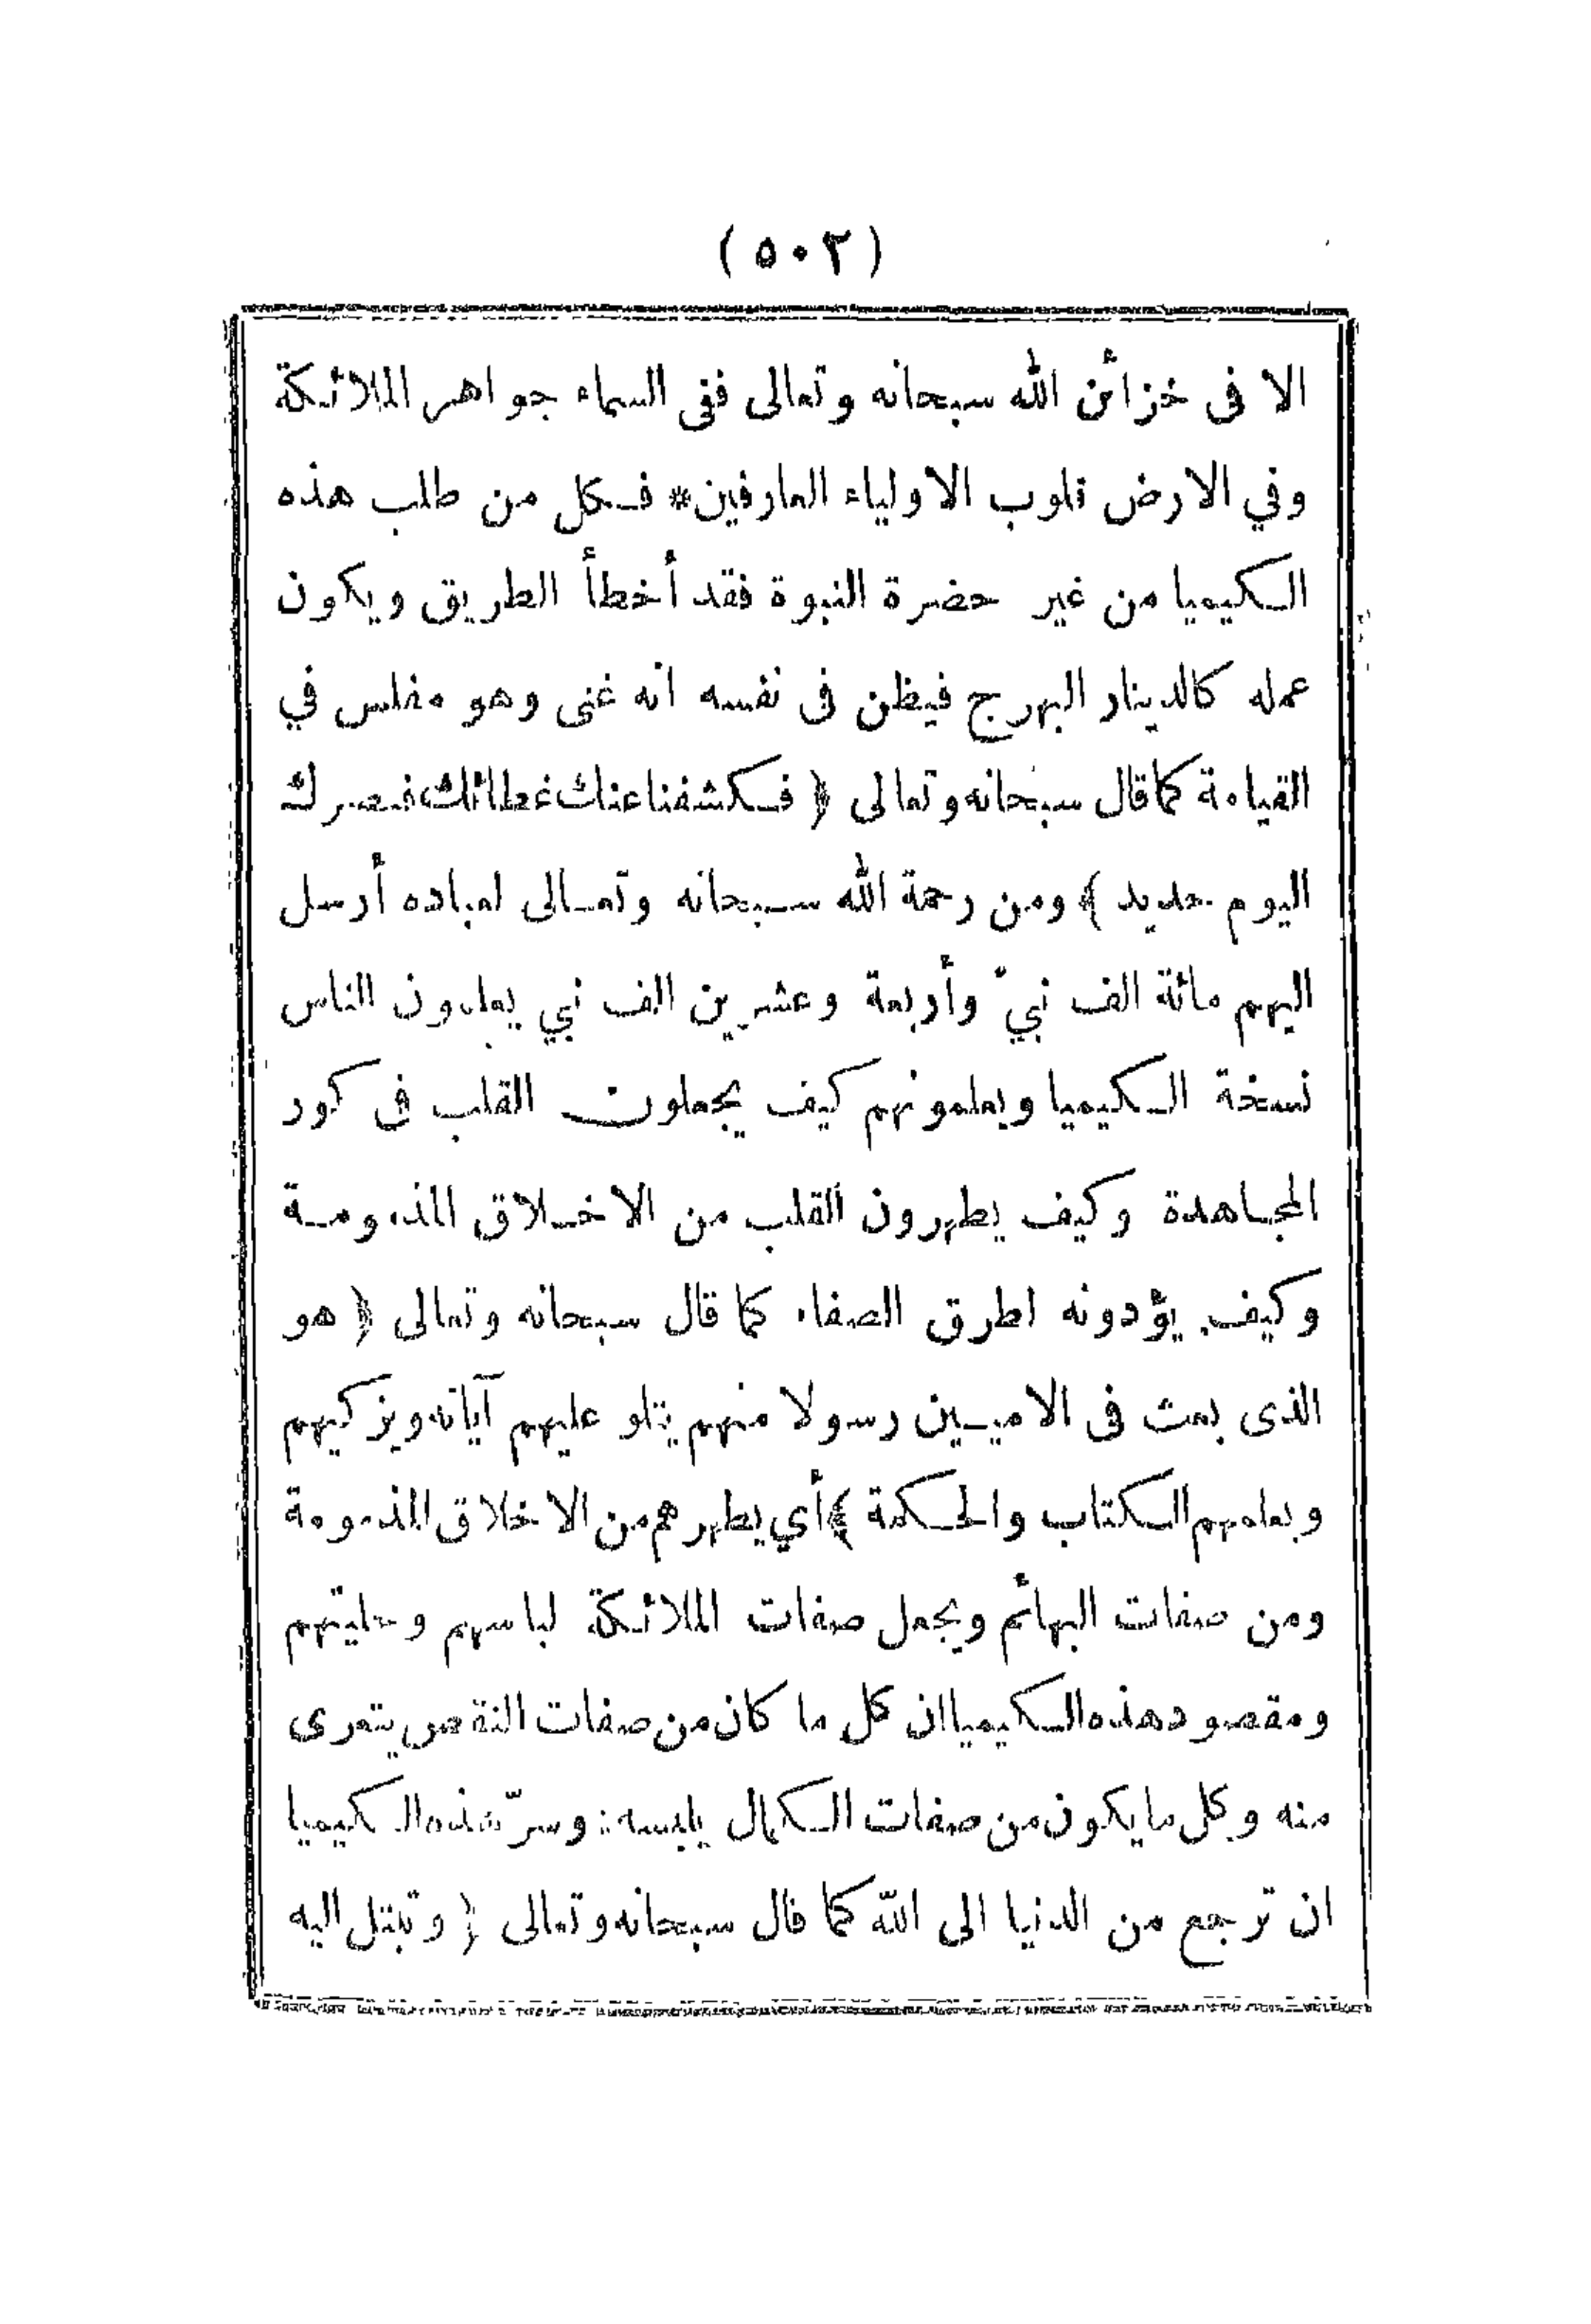 (٥٠٢)
الا فى خزائن الله سبحانه وتعالى ففى السماء جواهر الملائكة
وفي الارض قلوب الاولياء العارفين* فكل من طلب هذه
الكيميا من غير حضرة النبوة فقد أخطأ الطريق ويكون
عمله كالدينار البهرج فيظن فى نفسه انه غنى وهو مفلس في
القيامة كما قال سبحانه وتعالى ﴿ فكشفنا عنك غطائك فبصرك
اليوم حديد ﴾ ومن رحمة الله سبحانه وتعالى لعباده أرسل
اليهم مائة الف نبيّ وأربعة وعشرين الف نبي يعلمون الناس
نسخة الكيميا ويعلمونهم كيف يجعلون القلب فى كور
المجاهدة وكيف يطهرون القلب من الاخلاق المذمومة
وكيف يؤدونه لطرق الصفاء كما قال سبحانه وتعالى ﴿ هو
الذى بعث فى الاميين رسولا منهم يتلو عليهم آياته ويزكيهم
ويعلمهم الكتاب والحكمة ﴾ أي يطهرهم من الاخلاق المذمومة
ومن صفات البهائم ويجعل صفات الملائكة لباسهم وحليتهم
ومقصود هذه الكيميا ان كل ما كان من صفات النقص يتعرى
منه وكل ما يكون من صفات الكمال يلبسه: وسرّ هذه الكيميا
ان ترجع من الدنيا الى الله كما قال سبحانه وتعالى ﴿ وتبتل اليه